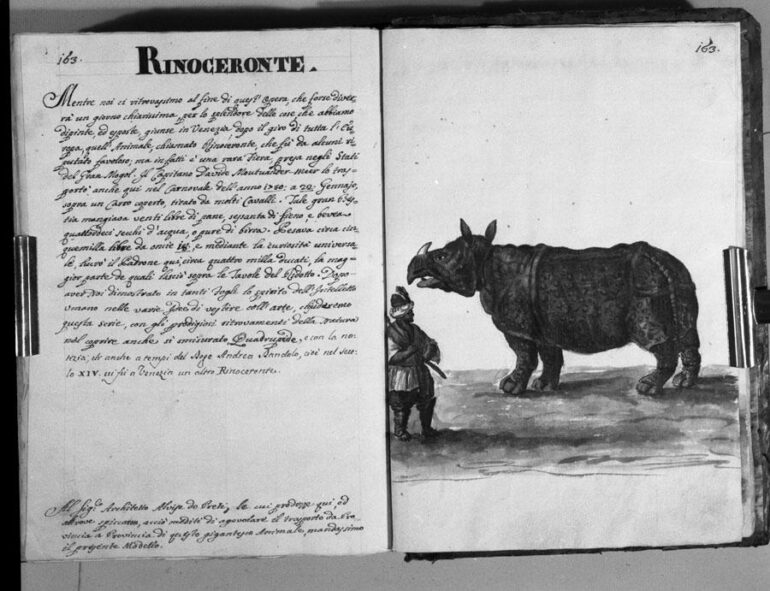 163.
RINOCERONTE.
Mentre noi ci ritrovassimo al fine di quest' Opera, che forse diver
rà un giorno chiarissima, per lo splendore delle cose che abbiamo
dipinte, ed esposte, giunse in Venezia dopo il giro di tutta l' Eu
ropa, quell' Animale, chiamato Rinoceronte, che fù da alcuni ri
putato favoloso; ma infatti è una rara Fiera, presa negli Stati
del Gran Mogol. Il Capitano Davide Meer lo tras
portò anche qui nel Carnovale dell' anno a Gennajo,
sopra un Carro coperto, tirato da molti Cavalli. Tale gran bes
tia mangiava venti libre di pane, sesanta di fieno, e bevea
quattordeci secchi d'acqua, o pure di birra. Pesava circa cin
quemilla libre da oncie e mediante la curiosità universa
le, il Padrone qui, circa quattro milla ducati, la mag
gior parte de quali lasciò sopra le Tavole del Ridotto. Dopo
aver Noi dimostrato in tanti fogli lo spirito dell' Intelletto
umano nelle varie Idee di vestire coll' arte, chiuderemo
questa serie, con gli prodigiosi ritrovamenti della Natura
nel coprire anche sì smisurato Quadrupede, e con la no
tizia, che anche a tempi del Doge Andrea Dandolo, cioè nel seco
lo XIV. vi fù a Venezia un altro Rinoceronte.
Al Sig.r Architetto Alvise de Preti, le cui prodezze qui ed
altrove spiccano, acciò mediti di agevolare il trasporto da Pro
vincia a Provincia di questo gigantesco Animale, mandassimo
il presente Modello.
163.